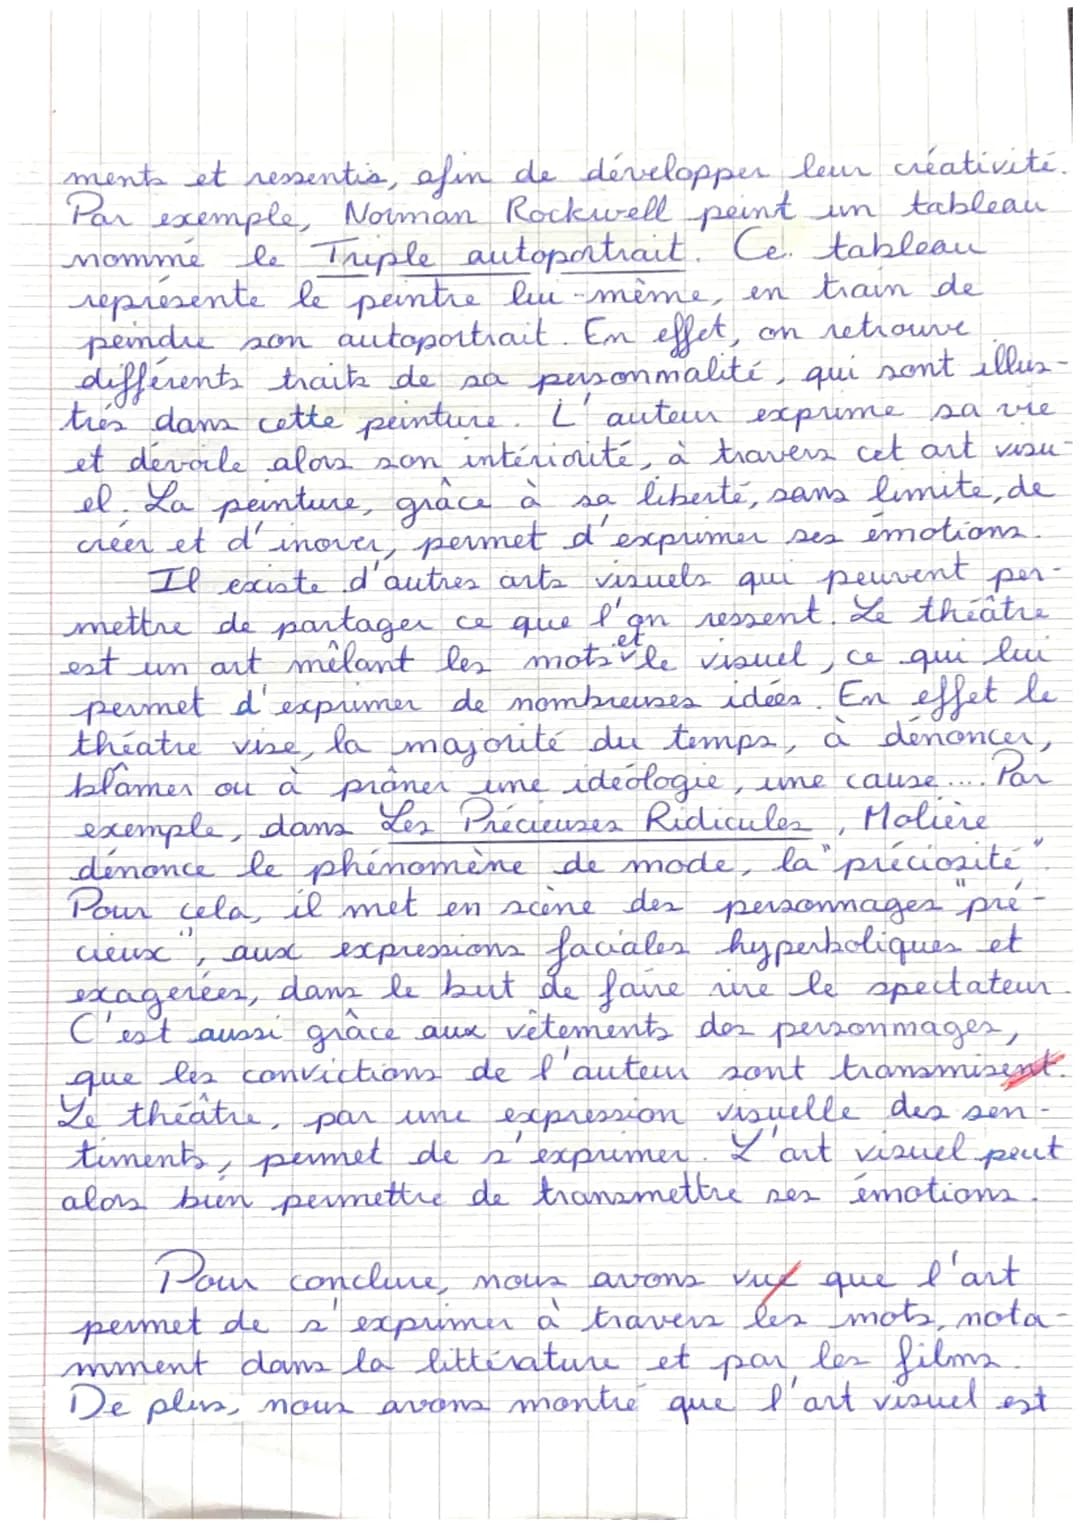 ments et ressentis, afin de développer leur créativité.
Par exemple, Norman Rockwell peint un tableau
nommé le Triple autoportrait. Ce tableau
représente le peintre lui-même, en train de
peindre son autoportrait. En effet, on retrouve
différents traits de sa personnalité, qui sont illus-
trés dans cette peinture. L'auteur exprime sa vie
et dévoile alors son intériorité, à travers cet art visu-
el. La peinture, grâce à sa liberté, sans limite, de
créer et d'inover, permet d'exprimer ses émotions.
Il existe d'autres arts visuels qui peuvent per-
mettre de partager ce que l'on ressent. Le théâtre
est un art mêlant les mots et le visuel, ce qui lui
permet d'exprimer de nombreuses idées. En effet le
théatre vise, la majorité du temps, à dénoncer,
blâmer ou à prôner une idéologie, une cause.... Par
exemple, dans Les Précieuses Ridicules, Molière
dénonce le phénomène de mode, la "préciosité".
Pour cela, il met en scène des personnages "pré-
cieux", aux expressions faciales hyperboliques et
exagerées, dans le but de faire rire le spectateur.
C'est aussi grâce aux vêtements des personnages,
que les convictions de l'auteur sont transmisent.
Le théâtre, par une expression visuelle des sen-
timents, permet de s'exprimer. L'art visuel peut
alors bien permettre de transmettre ses émotions.
Pour conclure, nous avons vux que l'art
permet de s'exprimer à travers les mots, nota-
mment dans la littérature et par les films.
De plus, nous avons montré que l'art visuel est